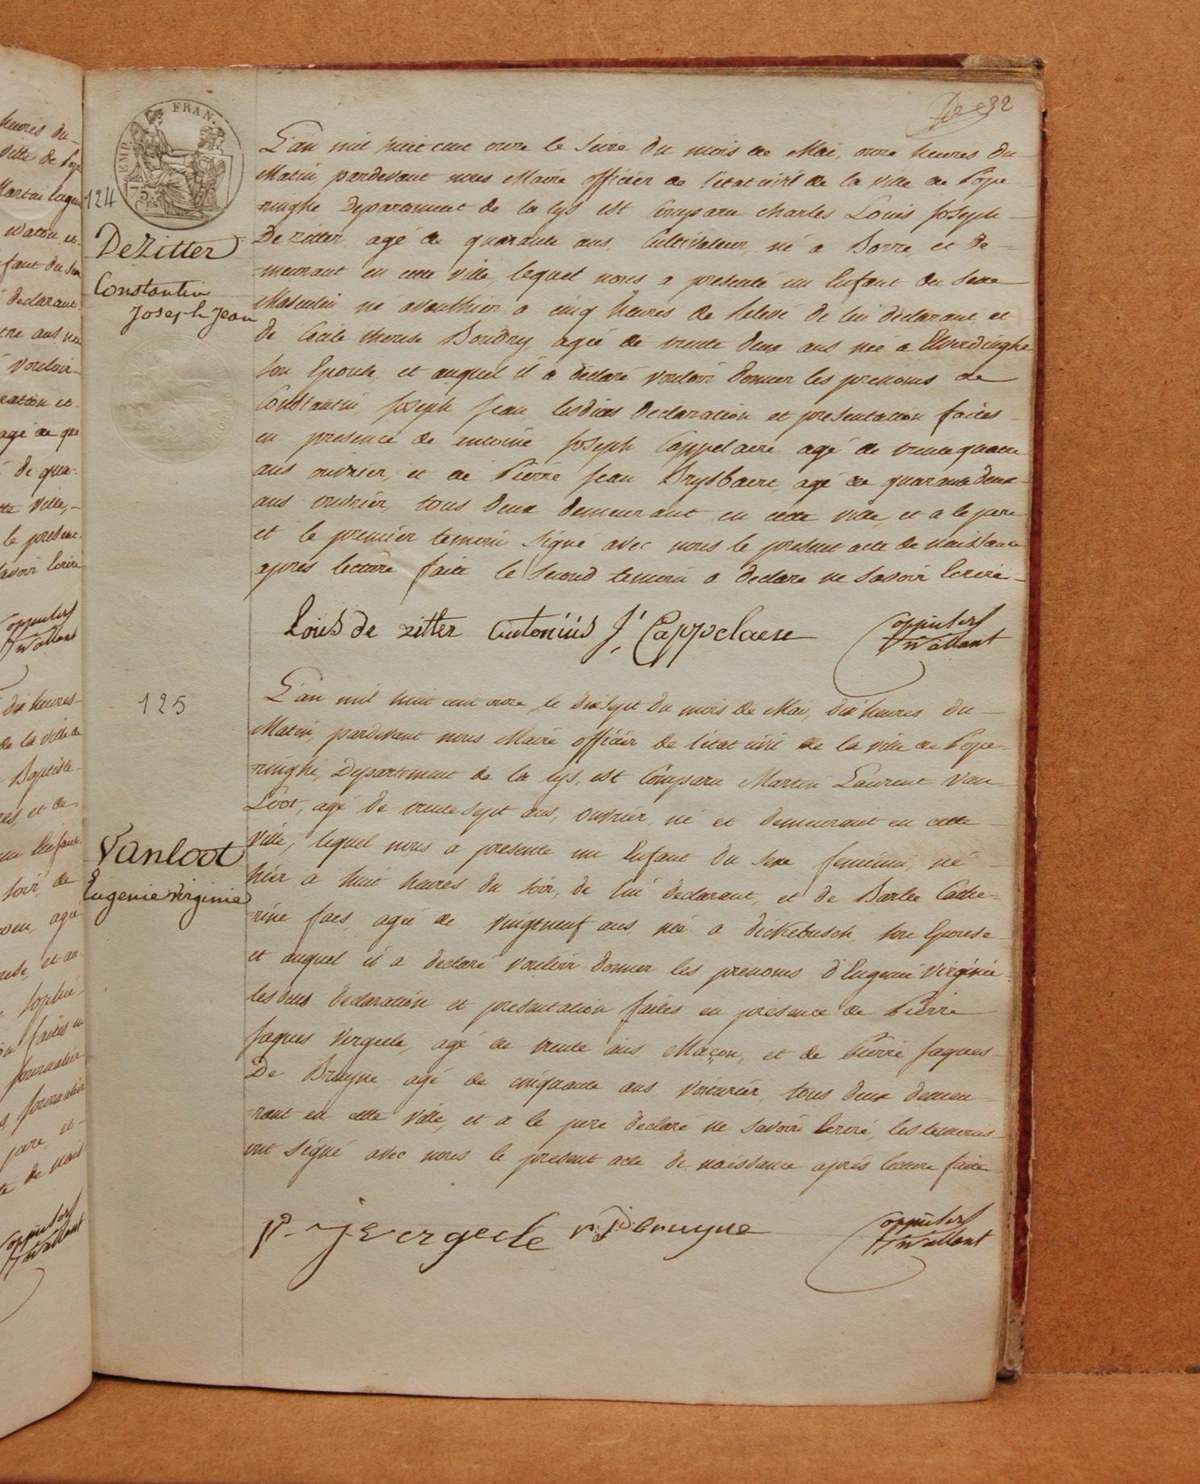 32
EMP. FRAN.
124
DeZitter
Constantin
Joseph Jean
L'an mil huit cent onze le seize du mois de Mai, onze heures du
Matin pardevant nous Maire officier de l'etat civil de la ville de Pope-
ringhe Departement de la Lys est Comparu Charles Louis Joseph
De zitter, agé de quarante ans, Cultivateur, né a Borre, et de-
meurant en cette ville, lequel nous a presenté un Enfant du sexe
Masculin né avanthier a cinq heures de relevé de lui déclarant et
de Cecile therese Boudry agée de trente deux ans née a Elverdinghe
son Epouse, et auquel il a déclaré vouloir donner les prenoms de
Constantin Joseph Jean lesdites declaration et presentation faites
en presence de Joseph Cappelaere agé de trentequatre
ans ouvrier, et de Pierre Jean Brysbaert, agé de quarante deux
ans ouvrier, tous deux demeurant en cette ville et a le pere
et le premier temoin signé avec nous le present acte de naissance
après lecture faite le second temoin a declaré ne savoir Ecrire
Louis de zitter Antoniüs J. Cappelaere
125
Vanloot
Eugenie virginie
L'an mil huit cent onze, le dixsept du mois de Mai, dix heures du
Matin, pardevant nous Maire officier de l'etat civil de la ville de Pope-
ringhe, Departement de la Lys, est Comparu Martin Laurent Van
Loot, agé de trentesept ans, ouvrier, né et demeurant en cette
ville, lequel nous a presenté un Enfant du sexe feminin, né
hier a huit heures du soir, de lui declarant, et de Barbe Cathe-
rine faes, agée de vingtneuf ans, née a dickebusch, son Epouse
et auquel il a declaré vouloir donner les prenoms d'Eugenie Virginie
lesdites declaration et presentation faites en presence de Pierre
Jaques Vergeele, agé de trente ans Maçon, et de Pierre Jaques
De Bruyne agé de cinquante ans voiturier, tous deux demeu-
rant en cette ville, et a le pere declaré ne savoir Ecrire, les temoins
ont signé avec nous le present acte de naissance après lecture faite
p. j vergeele p. J De bruyne